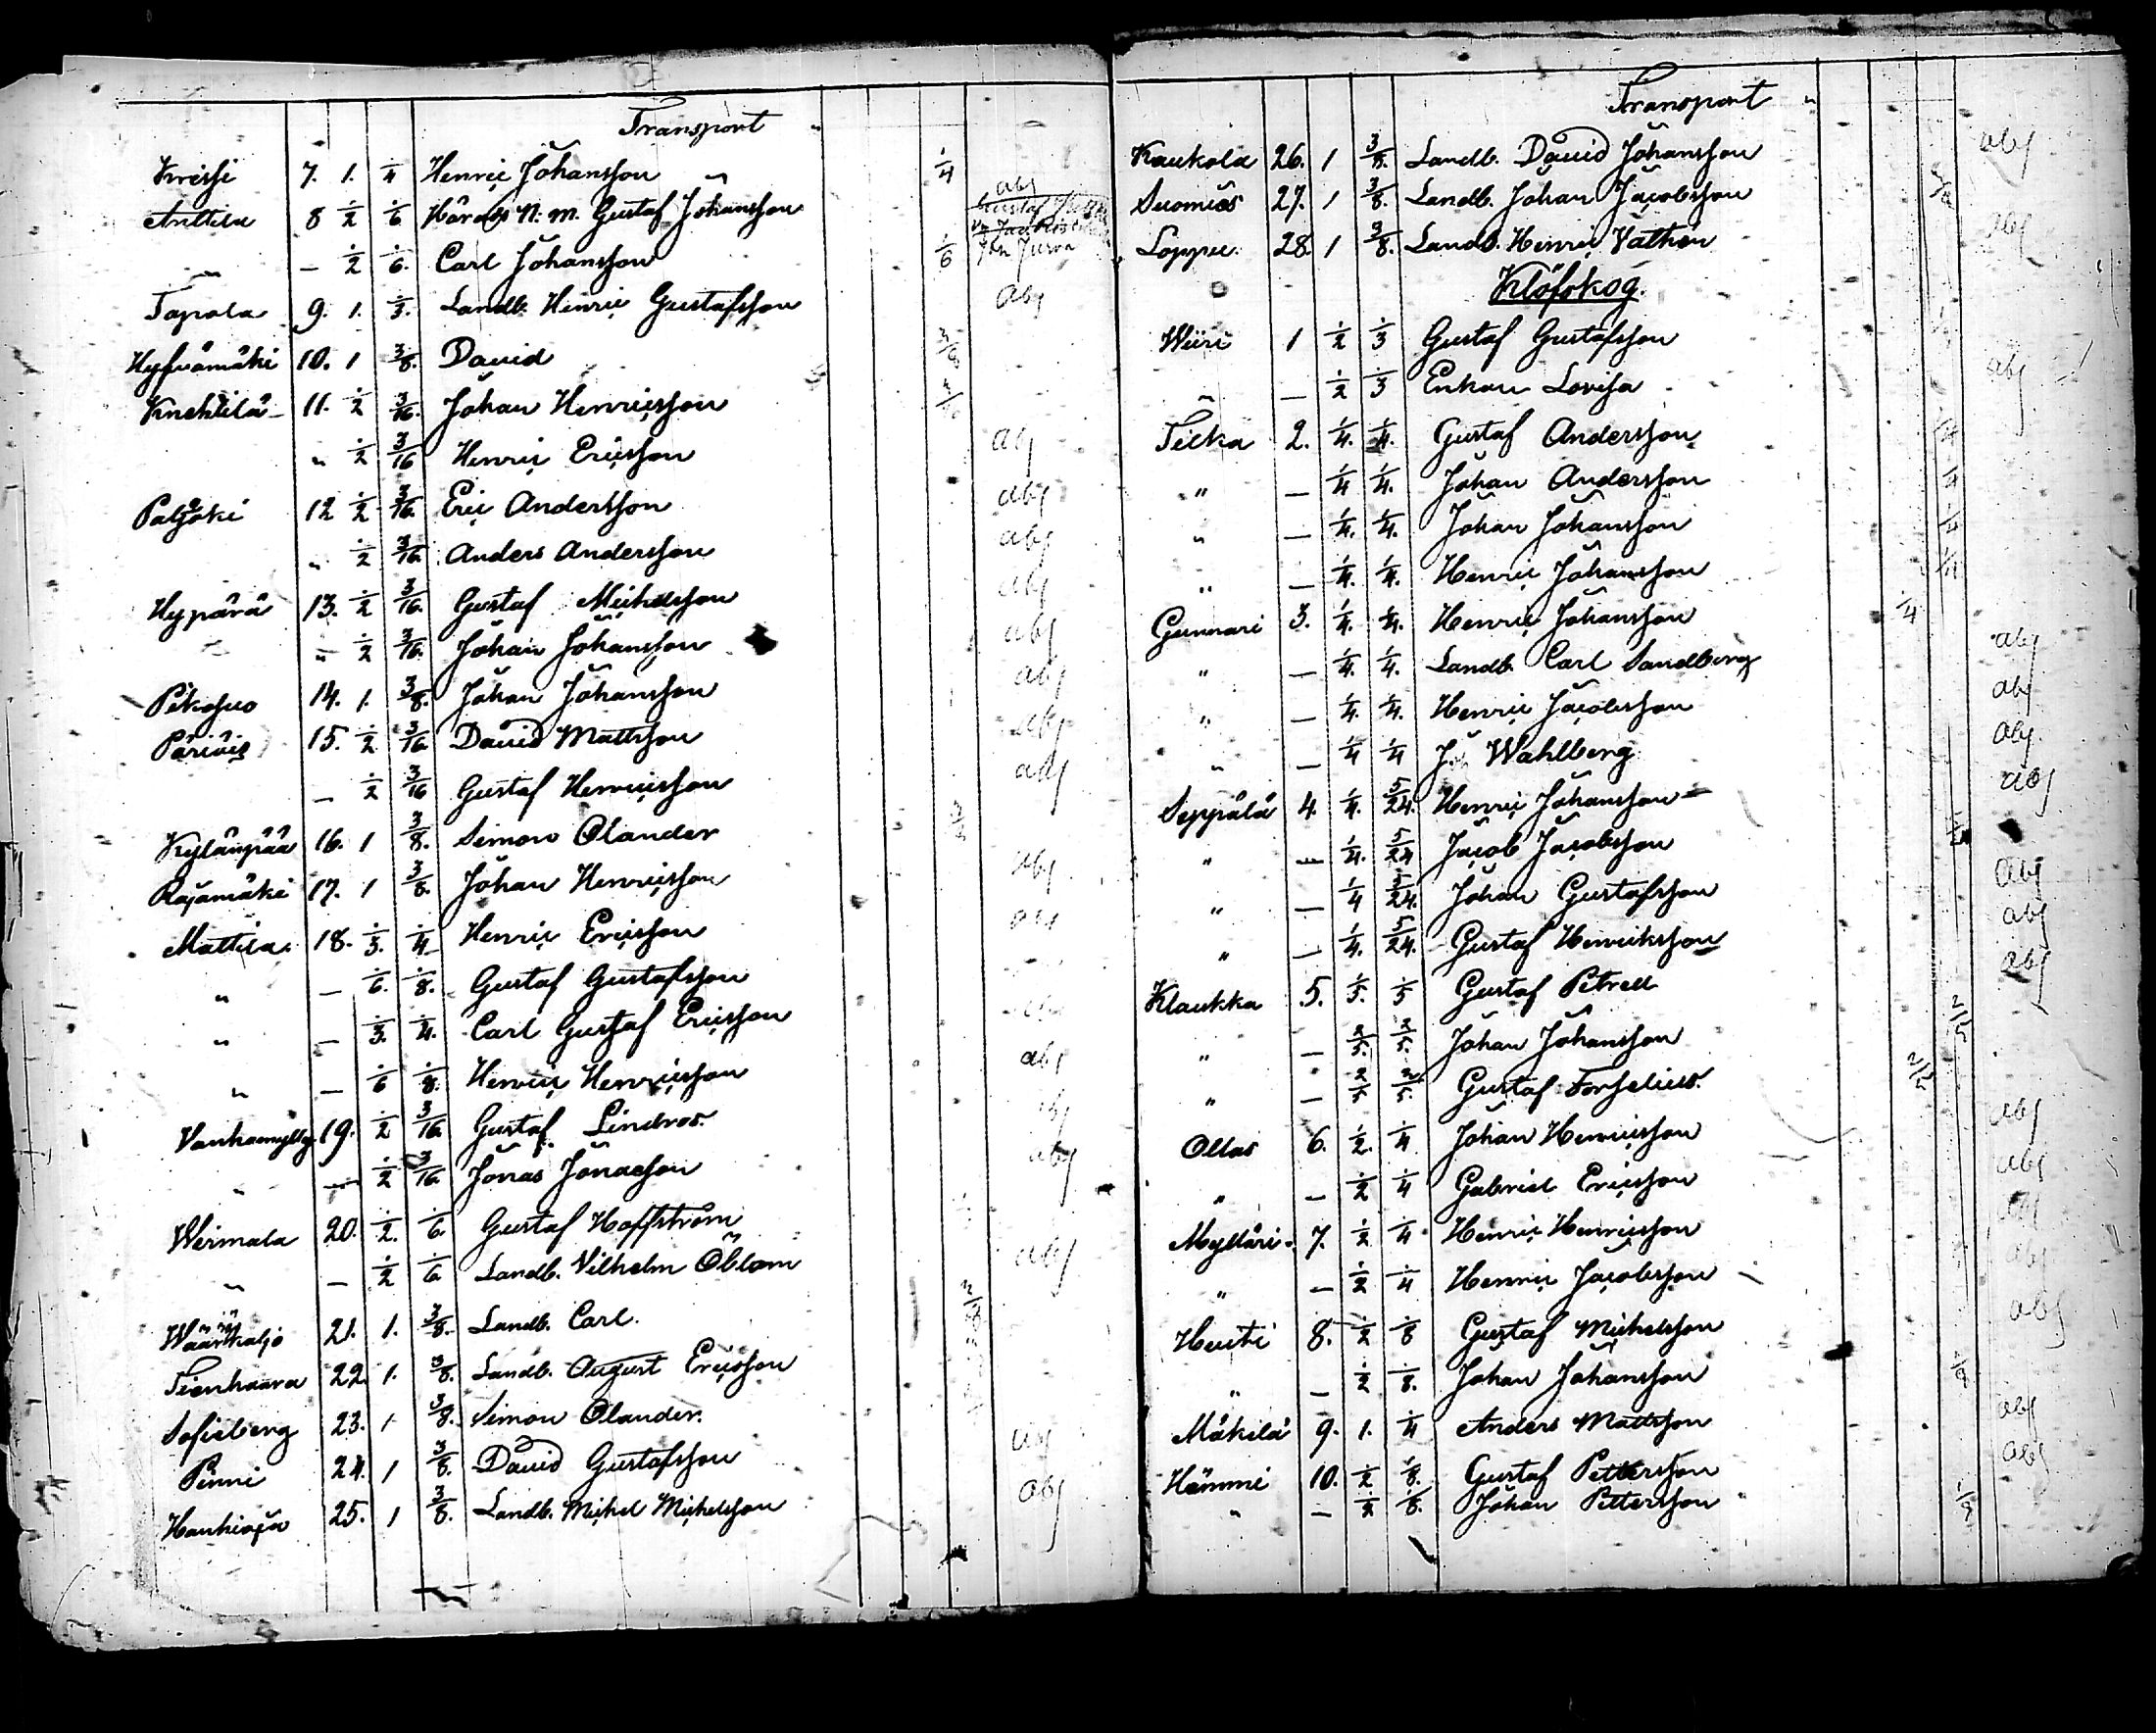 Transport "
Kreisi 7. 1. 1/4 Henric Johansson " 1/4
abj
Anttila 8 1/2 1/6 Härads N. m. Gustaf Johansson
" — 1/2 1/6. Carl Johansson 1/6
Tapola 9. 1. 1/3. Landb. Henric Gustafsson abj
Hyfvämäki 10. 1 3/8. David 3/8
Knehtilä 11. 1/2 3/16. Johan Henricsson
" 1/2 3/16 Henric Ericsson abj
Paljäki 12 1/2 3/16. Eric Andersson abj
" 1/2 3/16. Anders Andersson abj
Hypärä 13. 1/2 3/16. Gustaf Michelsson abj
" 1/2 3/16. Johan Johansson abj
Pitkäsuo 14. 1. 3/8. Johan Johansson abj
Päriäis 15. 1/2 3/16. David Mattsson abj
— 1/2 3/16 Gustaf Henricsson abj
Kylänpää 16. 1 3/8. Simon Olander
Rajamäki 17. 1 3/8. Johan Henricsson abj
Mattila. 18. 1/3. 1/4 Henric Ericsson abj
" — 1/6. 1/8. Gustaf Gustafsson
" — 1/3. 1/4. Carl Gustaf Ericsson
" — 1/6 1/8. Henric Henricsson abj
Vanhamylly 19. 1/2 3/16. Gustaf Lindros. abj
" — 1/2 3/16. Jonas Jonasson abj
Weirmala 20. 1/2. 1/6. Gustaf Hoffström
" — 1/2 1/6. Landb. Vilhelm Öblom abj
Wäärkaljo 21. 1. 3/8. Landb. Carl.
Tienhaara 22. 1. 3/8. Landb. August Ericsson
Sofieberg 23. 1 3/8. Simon Olander.
Pinni 24. 1 3/8. David Gustafsson abj
Hanhioja 25. 1 3/8. Landb. Michel Michelsson abj
Transport "
Kaukola 26. 1 3/8. Landb. David Johansson abj
Suomiäs 27. 1 3/8. Landb. Johan Jacobsson
Loppu. 28. 1 3/8. Landb. Henric Vathén abj
Klöfskog.
Wiiri 1 1/2 1/3 Gustaf Gustafsson
" — 1/2 1/3 Enkan Lovisa abj
Tilka 2. 1/4. 1/4. Gustaf Andersson
" — 1/4 1/4. Johan Andersson
" — 1/4. 1/4. Johan Johansson
" — 1/4. 1/4. Henric Johansson
Gunnari 3. 1/4. 1/4. Henric Johansson 1/4
" — 1/4. 1/4. Landb. Carl Sandberg abj
" — 1/4. 1/4. Henric Jacobsson abj
" — 1/4 1/4 Joh Wahlberg abj
Seppälä 4. 1/4. 5/24. Henric Johansson abj
" — 1/4. 5/24 Jacob Jacobsson
" — 1/4 5/24. Johan Gustafsson abj
" — 1/4. 5/24. Gustaf Henriksson abj
Klaukka 5. 1/5. 1/5 Gustaf Petrell abj
" — 2/5. 2/5. Johan Johansson 2/5
" — 2/5 2/5. Gustaf Forselius. 2/5
Ollas 6. 1/2. 1/4 Johan Henricsson abj
" — 1/2 1/4 Gabriel Ericsson abj
Myllari. 7. 1/2 1/4 Henric Henricsson abj
" — 1/2 1/4 Henric Jacobsson abj
Husti 8. 1/2 1/8 Gustaf Michelsson abj
" — 1/2 1/8. Johan Johansson 1/8
Mäkilä 9. 1. 1/4 Anders Mattsson abj
Hämmi 10. 1/2 1/8. Gustaf Pettersson abj
" — 1/2 1/8. Johan Pettersson 1/8